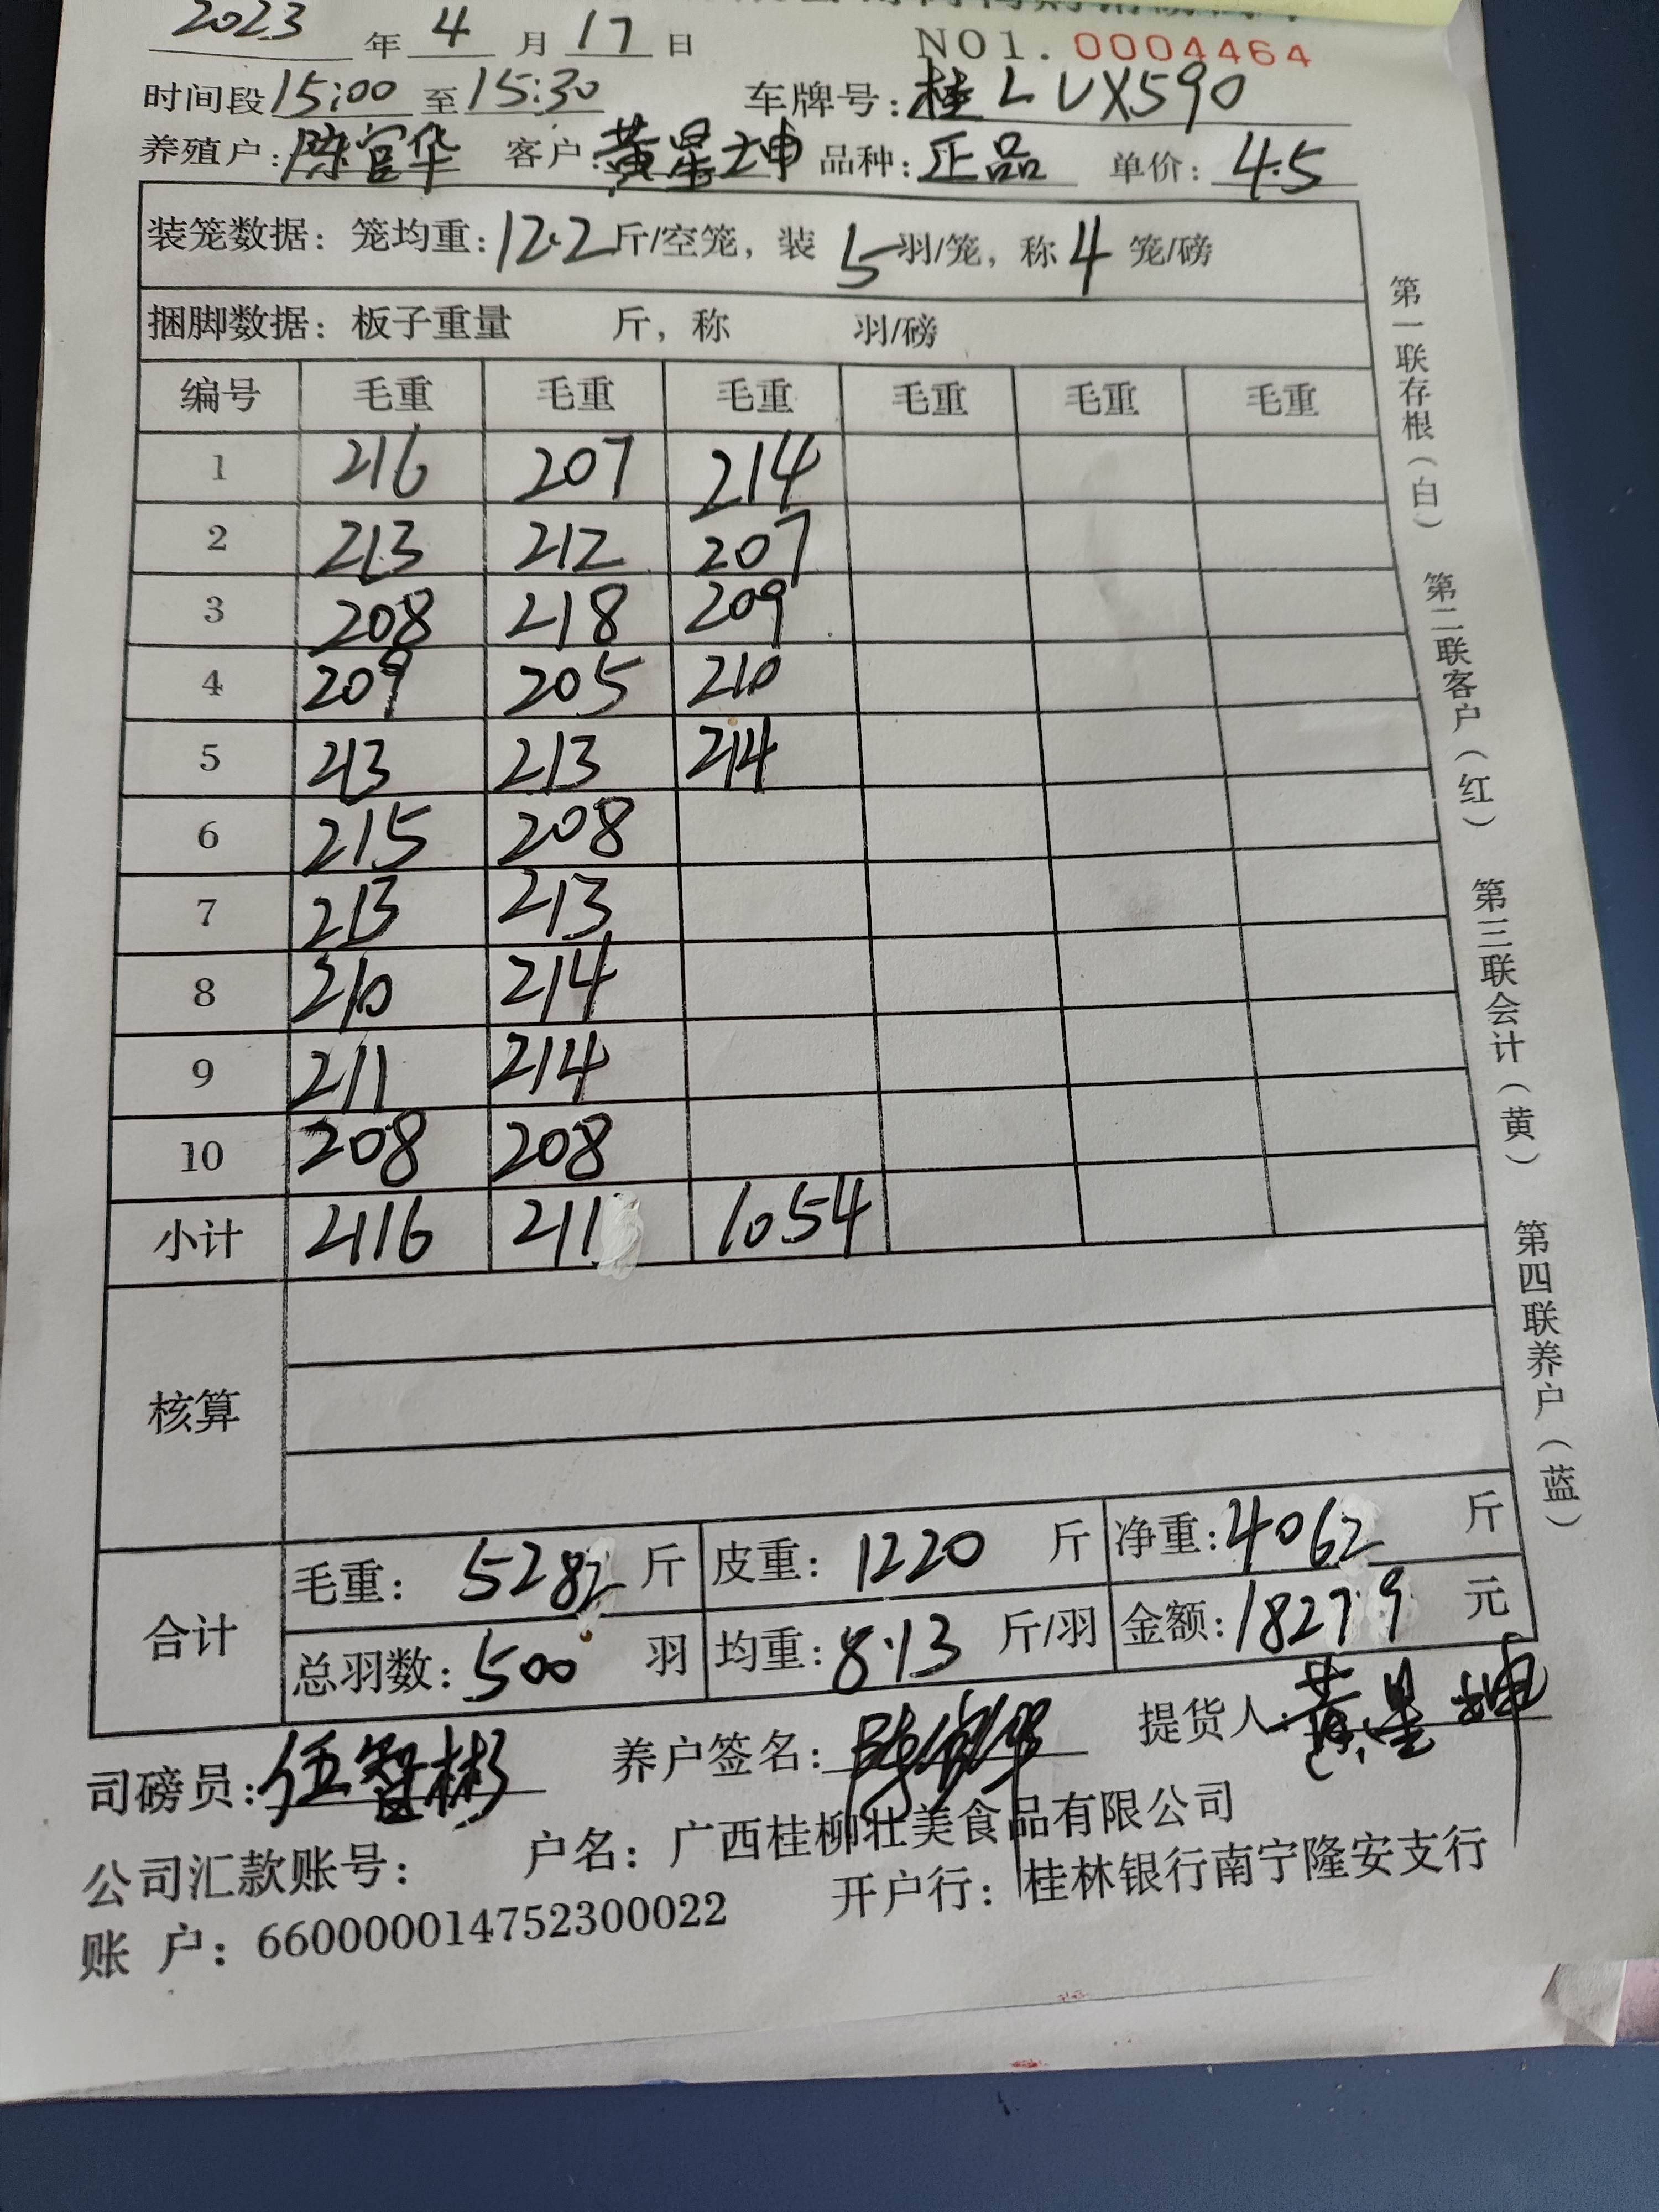 2023 年 4 月 17 日 NO1. 0004464
时间段 15:00 至 15:30 车牌号: 桂LUX590
养殖户: 陈官华 客户: 黄星坤 品种: 正品 单价: 4.5
装笼数据: 笼均重: 12.2 斤/空笼, 装 5 羽/笼, 称 4 笼/磅
捆脚数据: 板子重量 斤, 称 羽/磅
编号 毛重 毛重 毛重 毛重 毛重 毛重
1 216 207 214
2 213 212 207
3 208 218 209
4 209 205 210
5 213 213 214
6 215 208
7 213 213
8 210 214
9 211 214
10 208 208
小计 2116 211 1054
核算
合计
毛重: 5282 斤 皮重: 1220 斤 净重: 4062 斤
总羽数: 500 羽 均重: 8.13 斤/羽 金额: 18279 元
司磅员: 伍智彬 养户签名: 陈官华 提货人: 黄星坤
公司汇款账号: 户名: 广西桂柳壮美食品有限公司
账 户: 660000014752300022 开户行: 桂林银行南宁隆安支行
第一联存根(白) 第二联客户(红) 第三联会计(黄) 第四联养户(蓝)